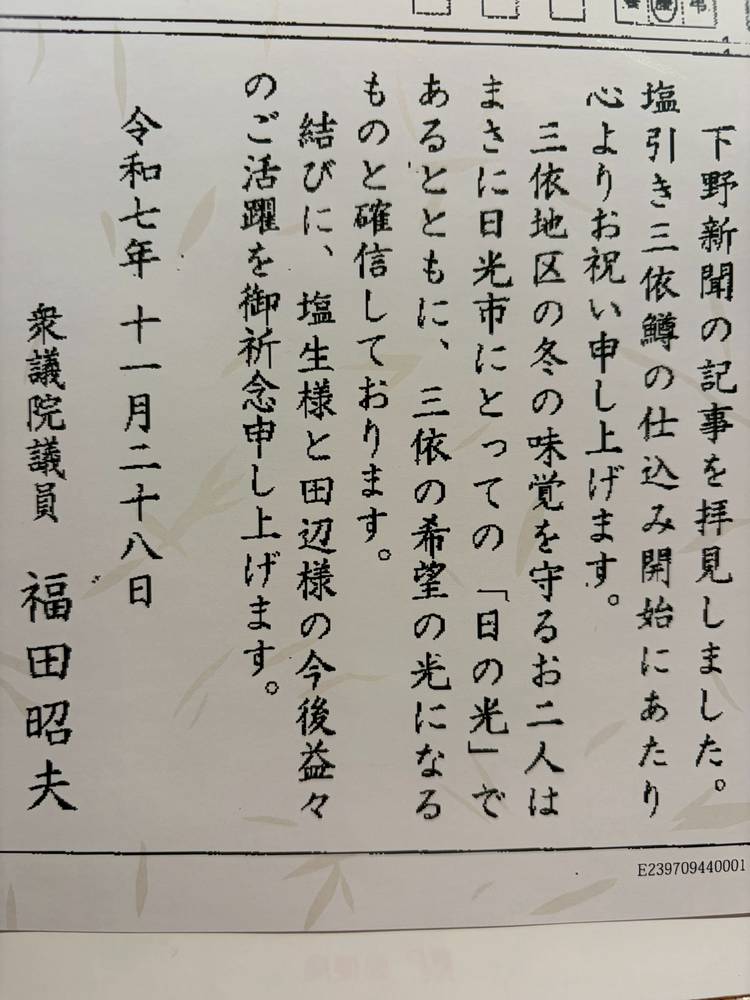 下野新聞の記事を拝見しました。
塩引き三依鱒の仕込み開始にあたり
心よりお祝い申し上げます。
三依地区の冬の味覚を守るお二人は
まさに日光市にとっての「日の光」で
あるとともに、三依の希望の光になる
ものと確信しております。
結びに、塩生様と田辺様の今後益々
のご活躍を御祈念申し上げます。
令和七年 十一月二十八日
衆議院議員 福田昭夫
E239709440001